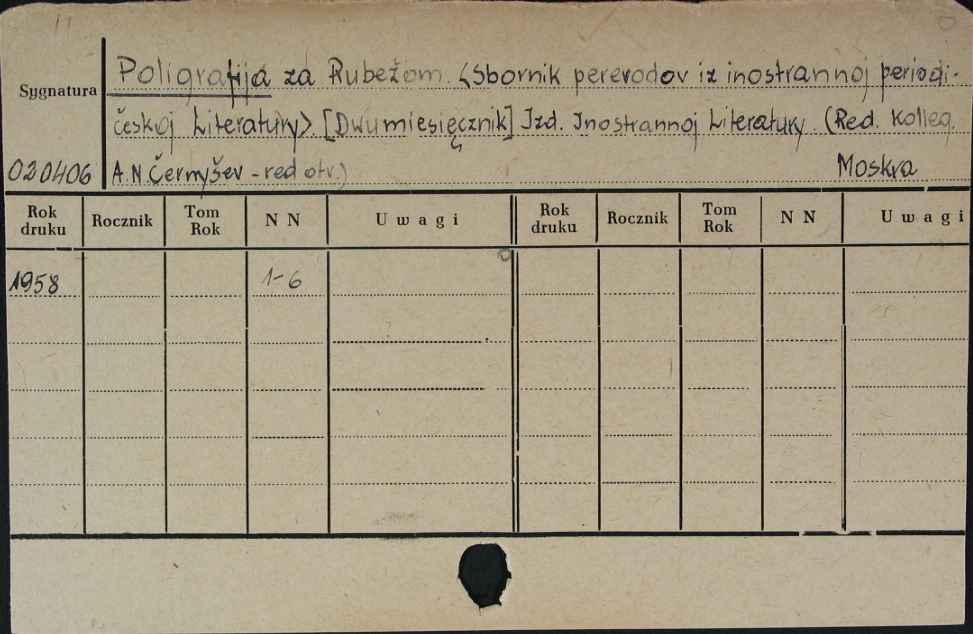 Sygnatura
Poligrafija za Rubežom. <Sbornik perevodov iz inostrannoj periodi-
českoj Literatury> [Dwumiesięcznik] Izd. Inostrannoj Literatury. (Red. Kolleg.
020406 A.N Černyšev - red otv.) Moskva
Rok druku Rocznik Tom Rok N N Uwagi Rok druku Rocznik Tom Rok N N Uwagi
1958 1-6